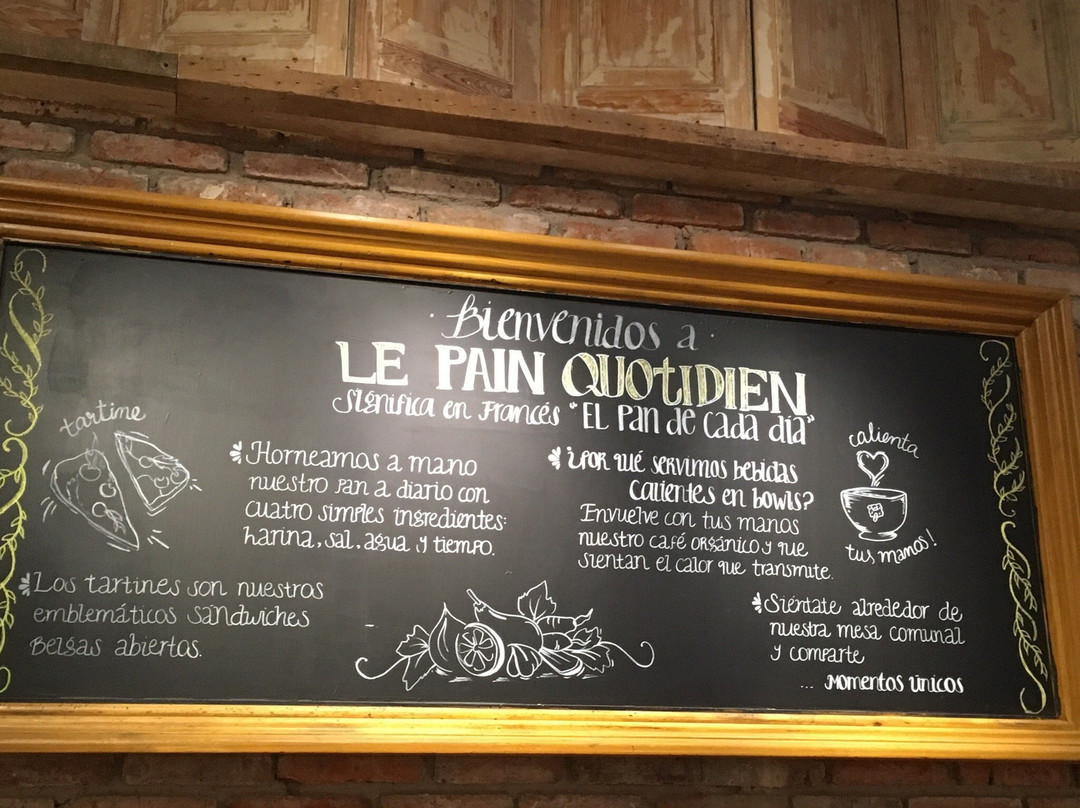 Bienvenidos a
LE PAIN QUOTIDIEN
Significa en Francés "EL Pan de Cada día"
tartine
Horneamos a mano
nuestro pan a diario con
cuatro simples ingredientes:
harina, sal, agua y tiempo.
Los tartines son nuestros
emblemáticos sandwiches
Belgas abiertos.
¿Por qué servimos bebidas
calientes en bowls?
Envuelve con tus manos
nuestro café orgánico y que
sientan el calor que transmite.
calienta
tus manos!
Siéntate alrededor de
nuestra mesa comunal
y comparte
... Momentos únicos